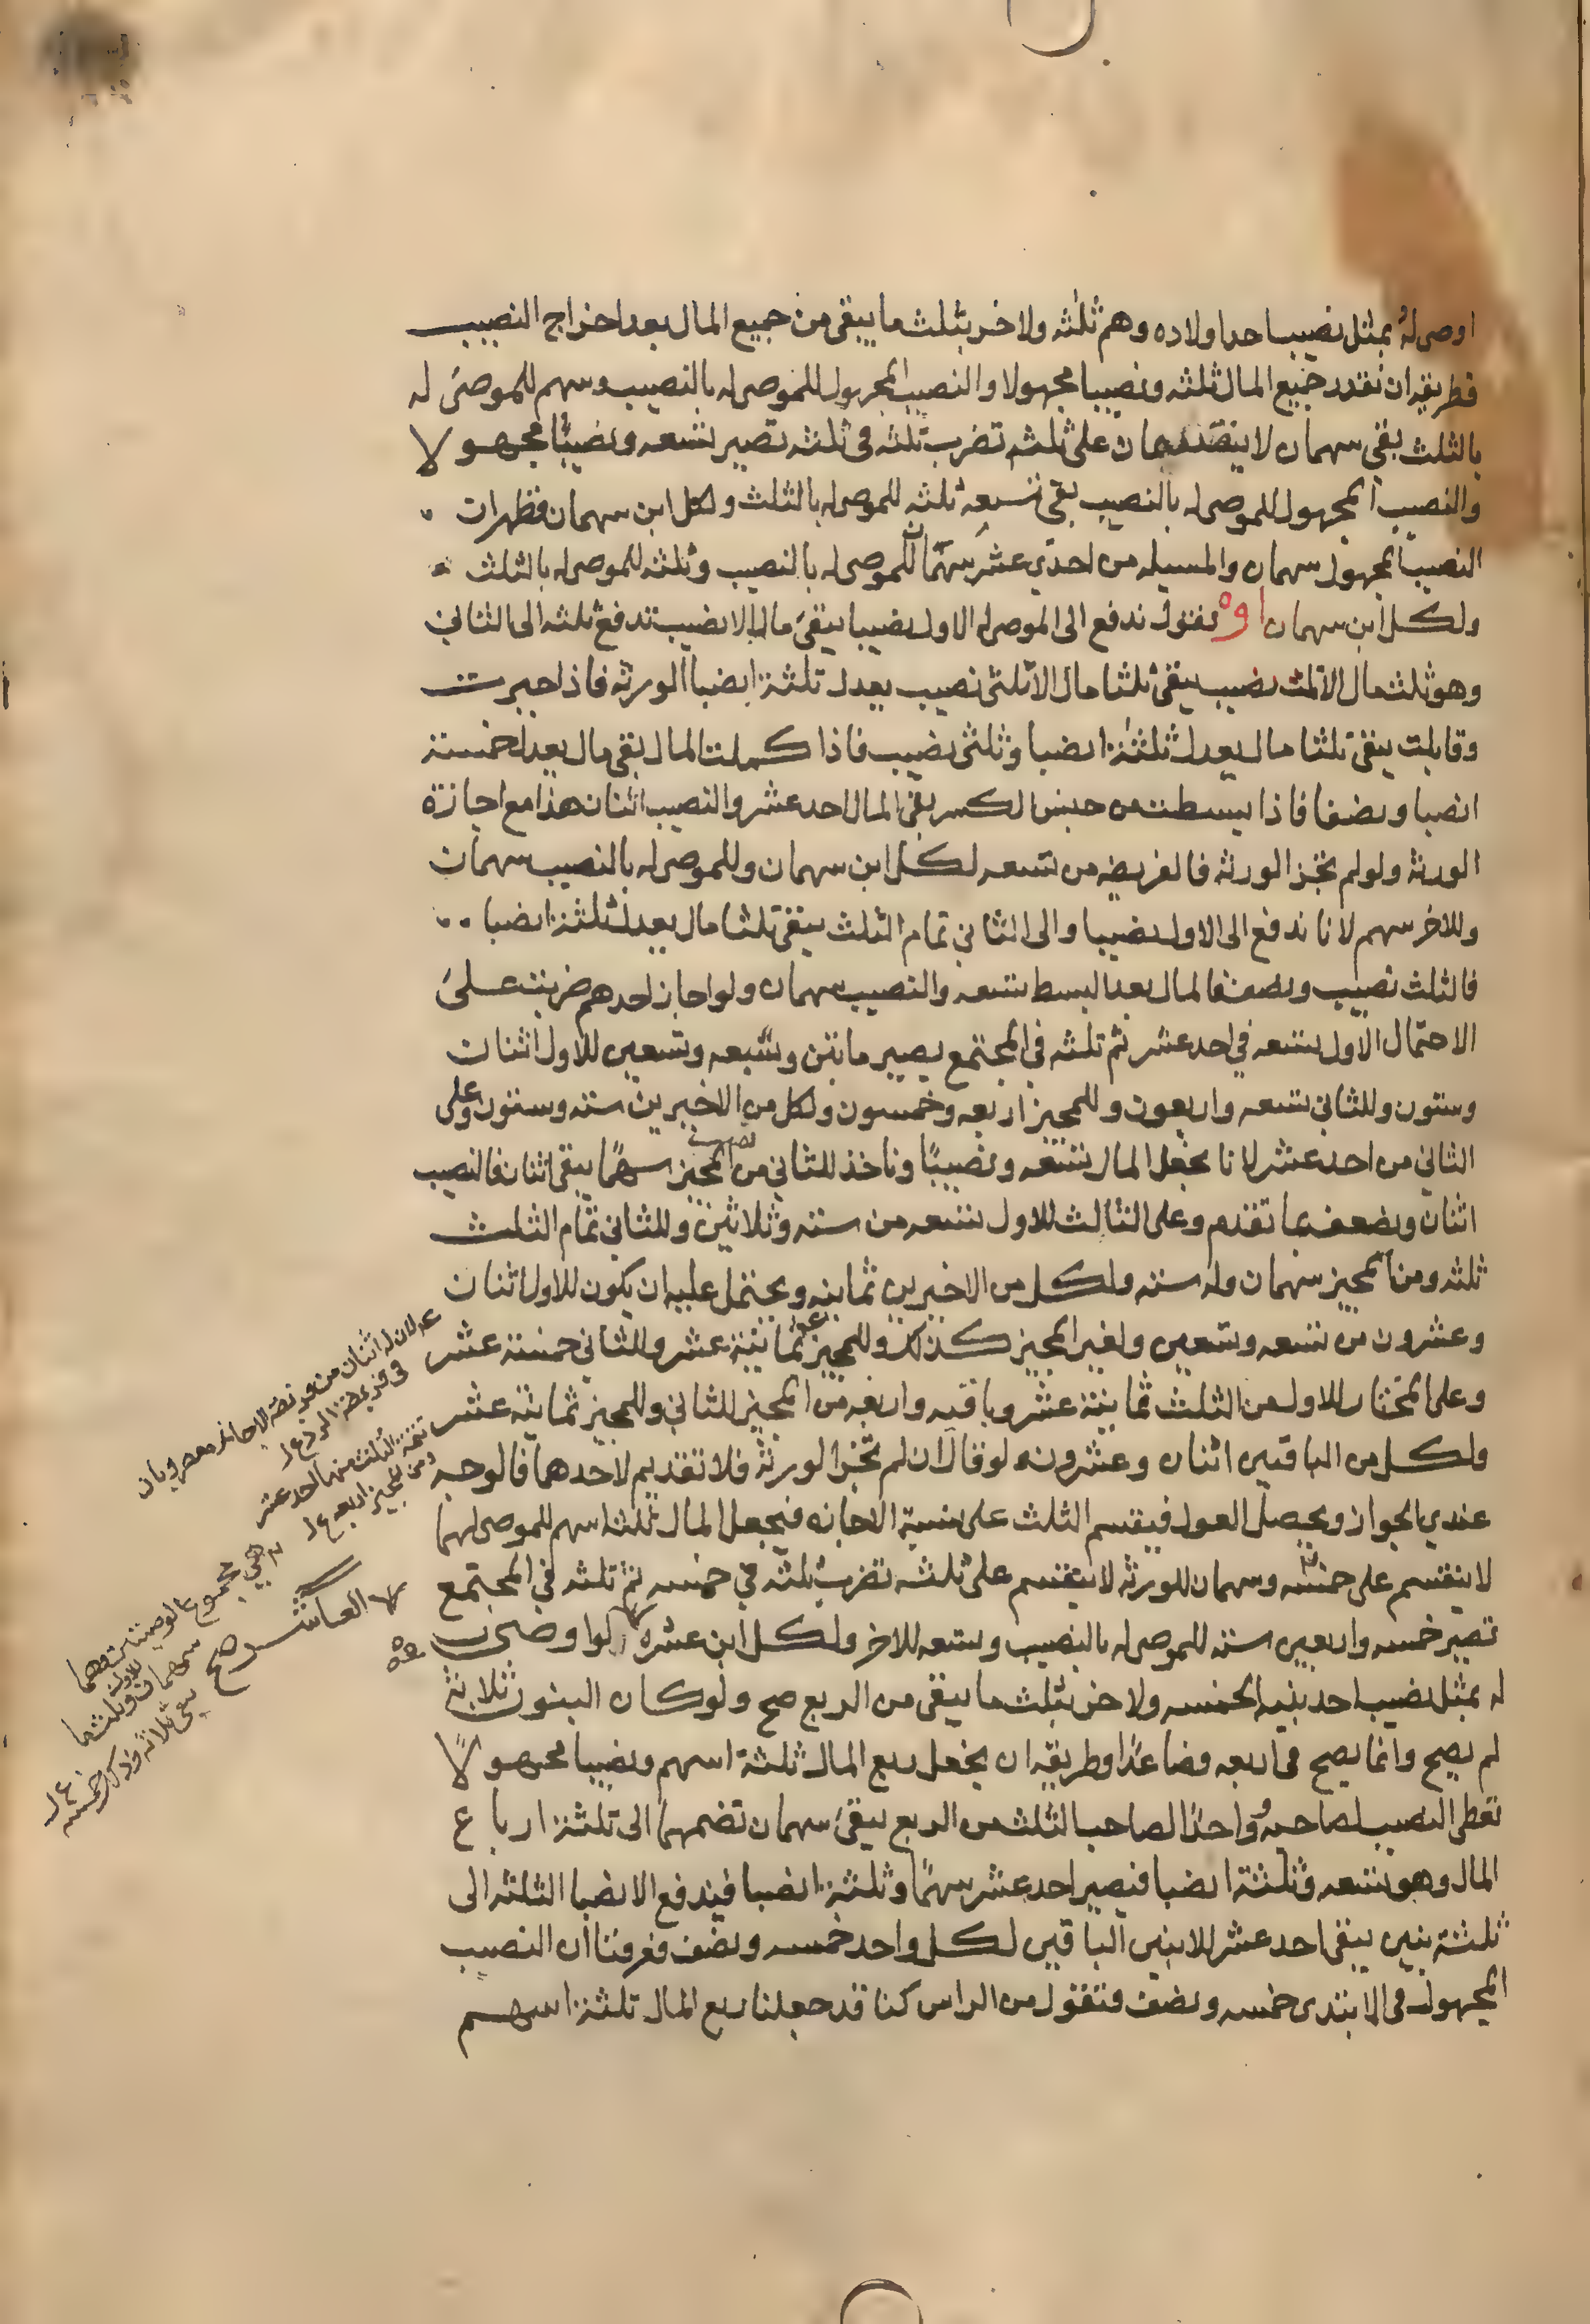 اوصى له بمثل نصيب احد اولاده وهم ثلثه ولاخر بثلث ما يبقى من جميع المال بعد اخراج النصيب
فطريقه ان نقدر جميع المال ثلثه ونصيبا مجهولا والنصيب المجهول للموصى له بالنصيب وسهم للموصى له
بالثلث بقى سهمان لا ينقسمان على ثلثه تضرب ثلثه فى ثلثه تصير تسعه ونصيبا مجهولا
والنصيب المجهول للموصى له بالنصيب بقى تسعه ثلثه للموصى له بالثلث ولكل ابن سهمان فظهر ان
النصيب المجهول سهمان والمسيله من احدى عشر سهما سهمان للموصى له بالنصيب وثلثه للموصى له بالثلث
ولكل ابن سهمان او نقول ندفع الى الموصى له الاول نصيبا يبقى مال الا نصيب ندفع ثلثه الى الثاني
وهو ثلث مال الا ثلث نصيب يبقى ثلثا مال الا ثلثى نصيب يعدل ثلثة انصبا الورثه فاذا جبرت
وقابلت يبقى ثلثا مال يعدل ثلثة انصبا وثلثى نصيب فاذا كملت المال بقى مال يعدل خمسة
انصبا ونصفا فاذا بسطت من جنس الكسر بقى المال احد عشر والنصيب اثنان هذا مع اجازة
الورثه ولو لم تجز الورثه فالفريضه من تسعه لكل ابن سهمان وللموصى له بالنصيب سهمان
وللاخر سهم لانا ندفع الى الاول نصيبا والى الثاني تمام الثلث يبقى ثلثا مال يعدل ثلثة انصبا
فالثلث نصيب ونصف فالمال بعد البسط تسعه والنصيب سهمان ولو اجاز احدهم ضربت على
الاحتمال الاول تسعه في احد عشر ثم ثلثه في المجتمع يصير مايتين وسبعه وتسعين للاول اثنان
وستون وللثاني تسعه واربعون وللمجيز اربعه وخمسون ولكل من الاخيرين سته وستون وعلى
الثاني من احد عشر لانا نجعل المال تسعه ونصيبا وناخذ للثاني من نصيب المجيز سهما يبقى اثنان فالنصيب
اثنان ويضعف بما تقدم وعلى الثالث للاول تسعه من سته وثلاثين وللثاني تمام الثلث
ثلثه ومن المجيز سهمان وله سته ولكل من الاخيرين ثمانيه ويحتمل عليه ان يكون للاول اثنان
وعشرون من تسعه وتسعين ولغير المجيز كذلك وللمجيز ثمانية عشر وللثاني خمسة عشر
وعلى المختار للاول من الثلث ثمانية عشر وباقيه واربعه من المجيز للثاني وللمجيز ثمانية عشر
ولكل من الباقيين اثنان وعشرون ه لو قال ان لم تجز الورثه فلا تقديم لاحدهما فالوجه
عندي الجواز ويحصل العول فيقسم الثلث على نسبة الاجازه فيجعل المال ثلثة اسهم للموصى لهما
لا ينقسم على خمسه وسهمان للورثه لا ينقسم على ثلثه تضرب ثلثه في خمسه ثم ثلثه في المجتمع
تصير خمسه واربعين سته للموصى له بالنصيب وتسعه للاخر ولكل ابن عشره لو اوصى
له بمثل نصيب احد بنيه الخمسه ولاخر بثلث ما يبقى من الربع صح ولو كان البنون ثلاثة
لم يصح وانما يصح في اربعه فصاعدا وطريقه ان يجعل ربع المال ثلثة اسهم ونصيبا مجهولا
تعطى النصيب لصاحبه وواحدا لصاحب الثلث من الربع يبقى سهمان تضمهما الى ثلثة ارباع
المال وهو تسعه وثلثة انصبا فيصير احد عشر سهما وثلثة انصبا فيدفع الانصبا الثلثه الى
ثلثة بنين يبقى احد عشر للابنين الباقيين لكل واحد خمسه ونصف فعرفنا ان النصيب
المجهول في الابتدى خمسه ونصف فنقول من الراس كنا قد جعلنا ربع المال ثلثة اسهم
لان له اثنان من فريضة الاجازه مضروبان
في فريضة الرد
تتمة الثلث منها احد عشر
ومن المجيز اربعه
هي مجموع الوصيتين وهما
سهمان للاول وثلثها
العاشر صح